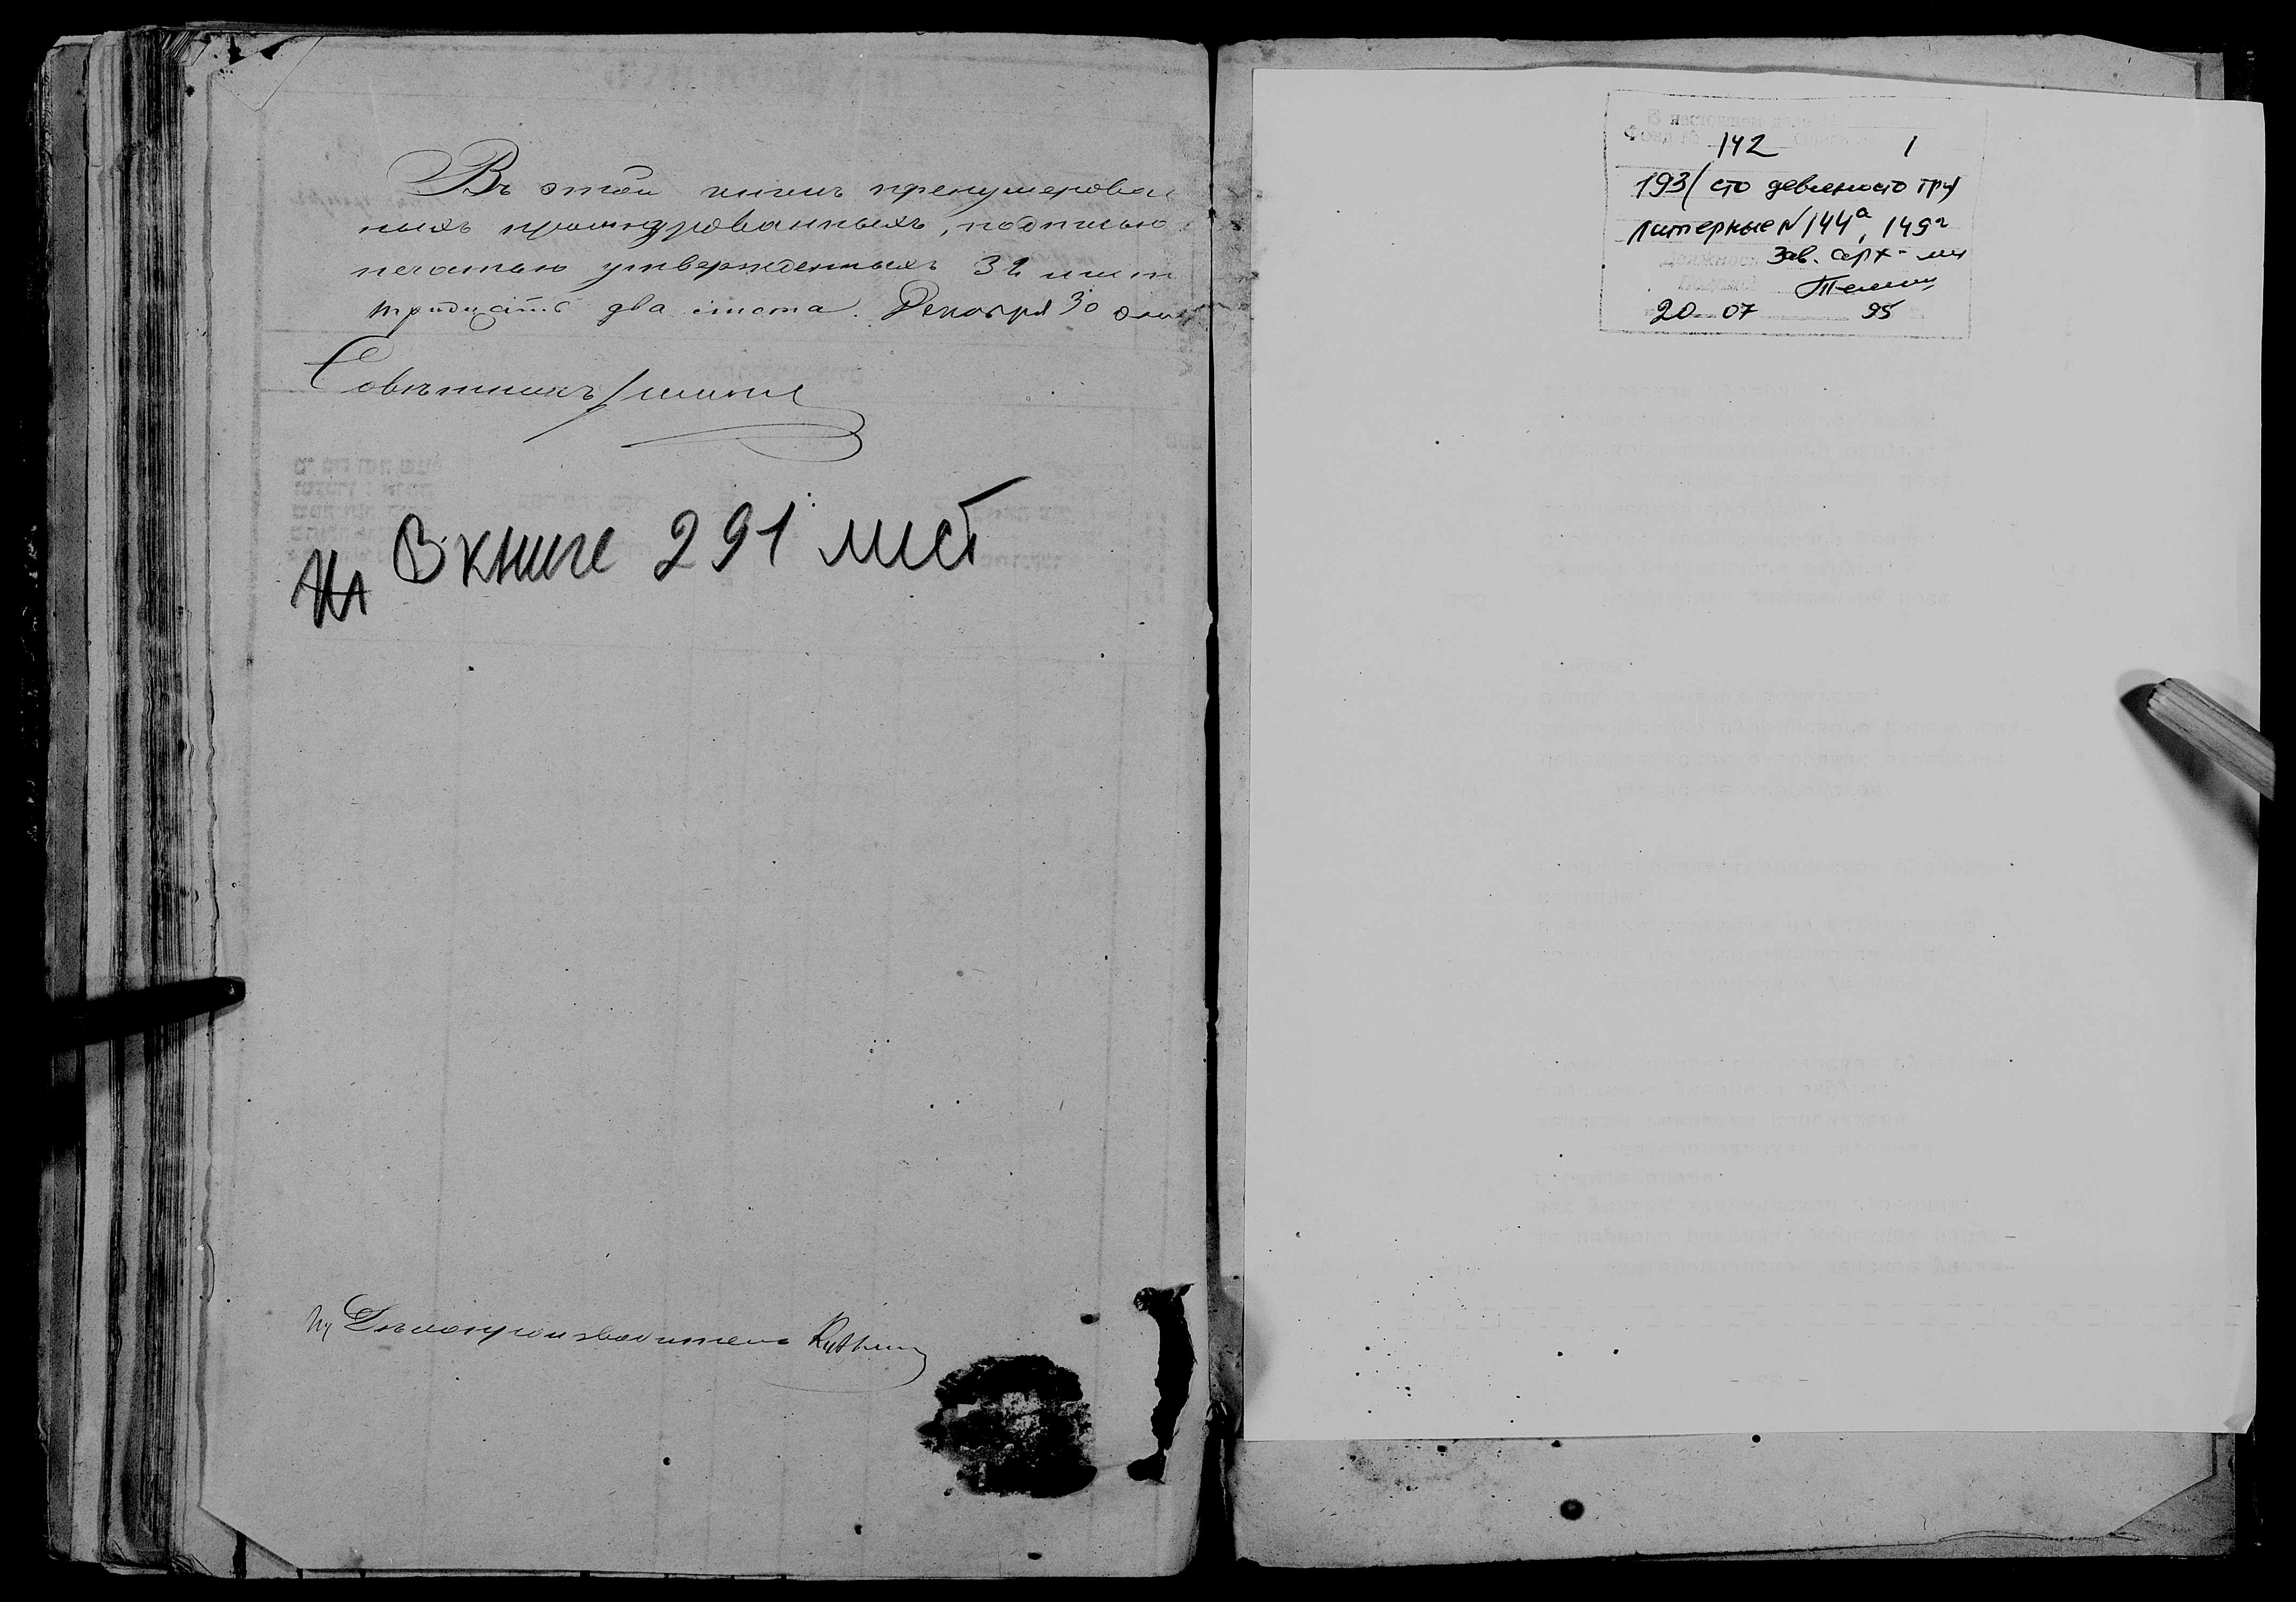 Въ этой книгѣ пренумерован
ныхъ прошнурованныхъ, подписью
печатью утвержденныхъ 32 лист
тридцать два листа. Декабря 30 дня
Совѣтникъ
В книге 291 лист
Дѣлопроизводитель
В настоящем деле
Фонд №
142 1
193/ сто девяносто три
литерные N 144а, 149а
Должность Зав. арх-
20 07 95